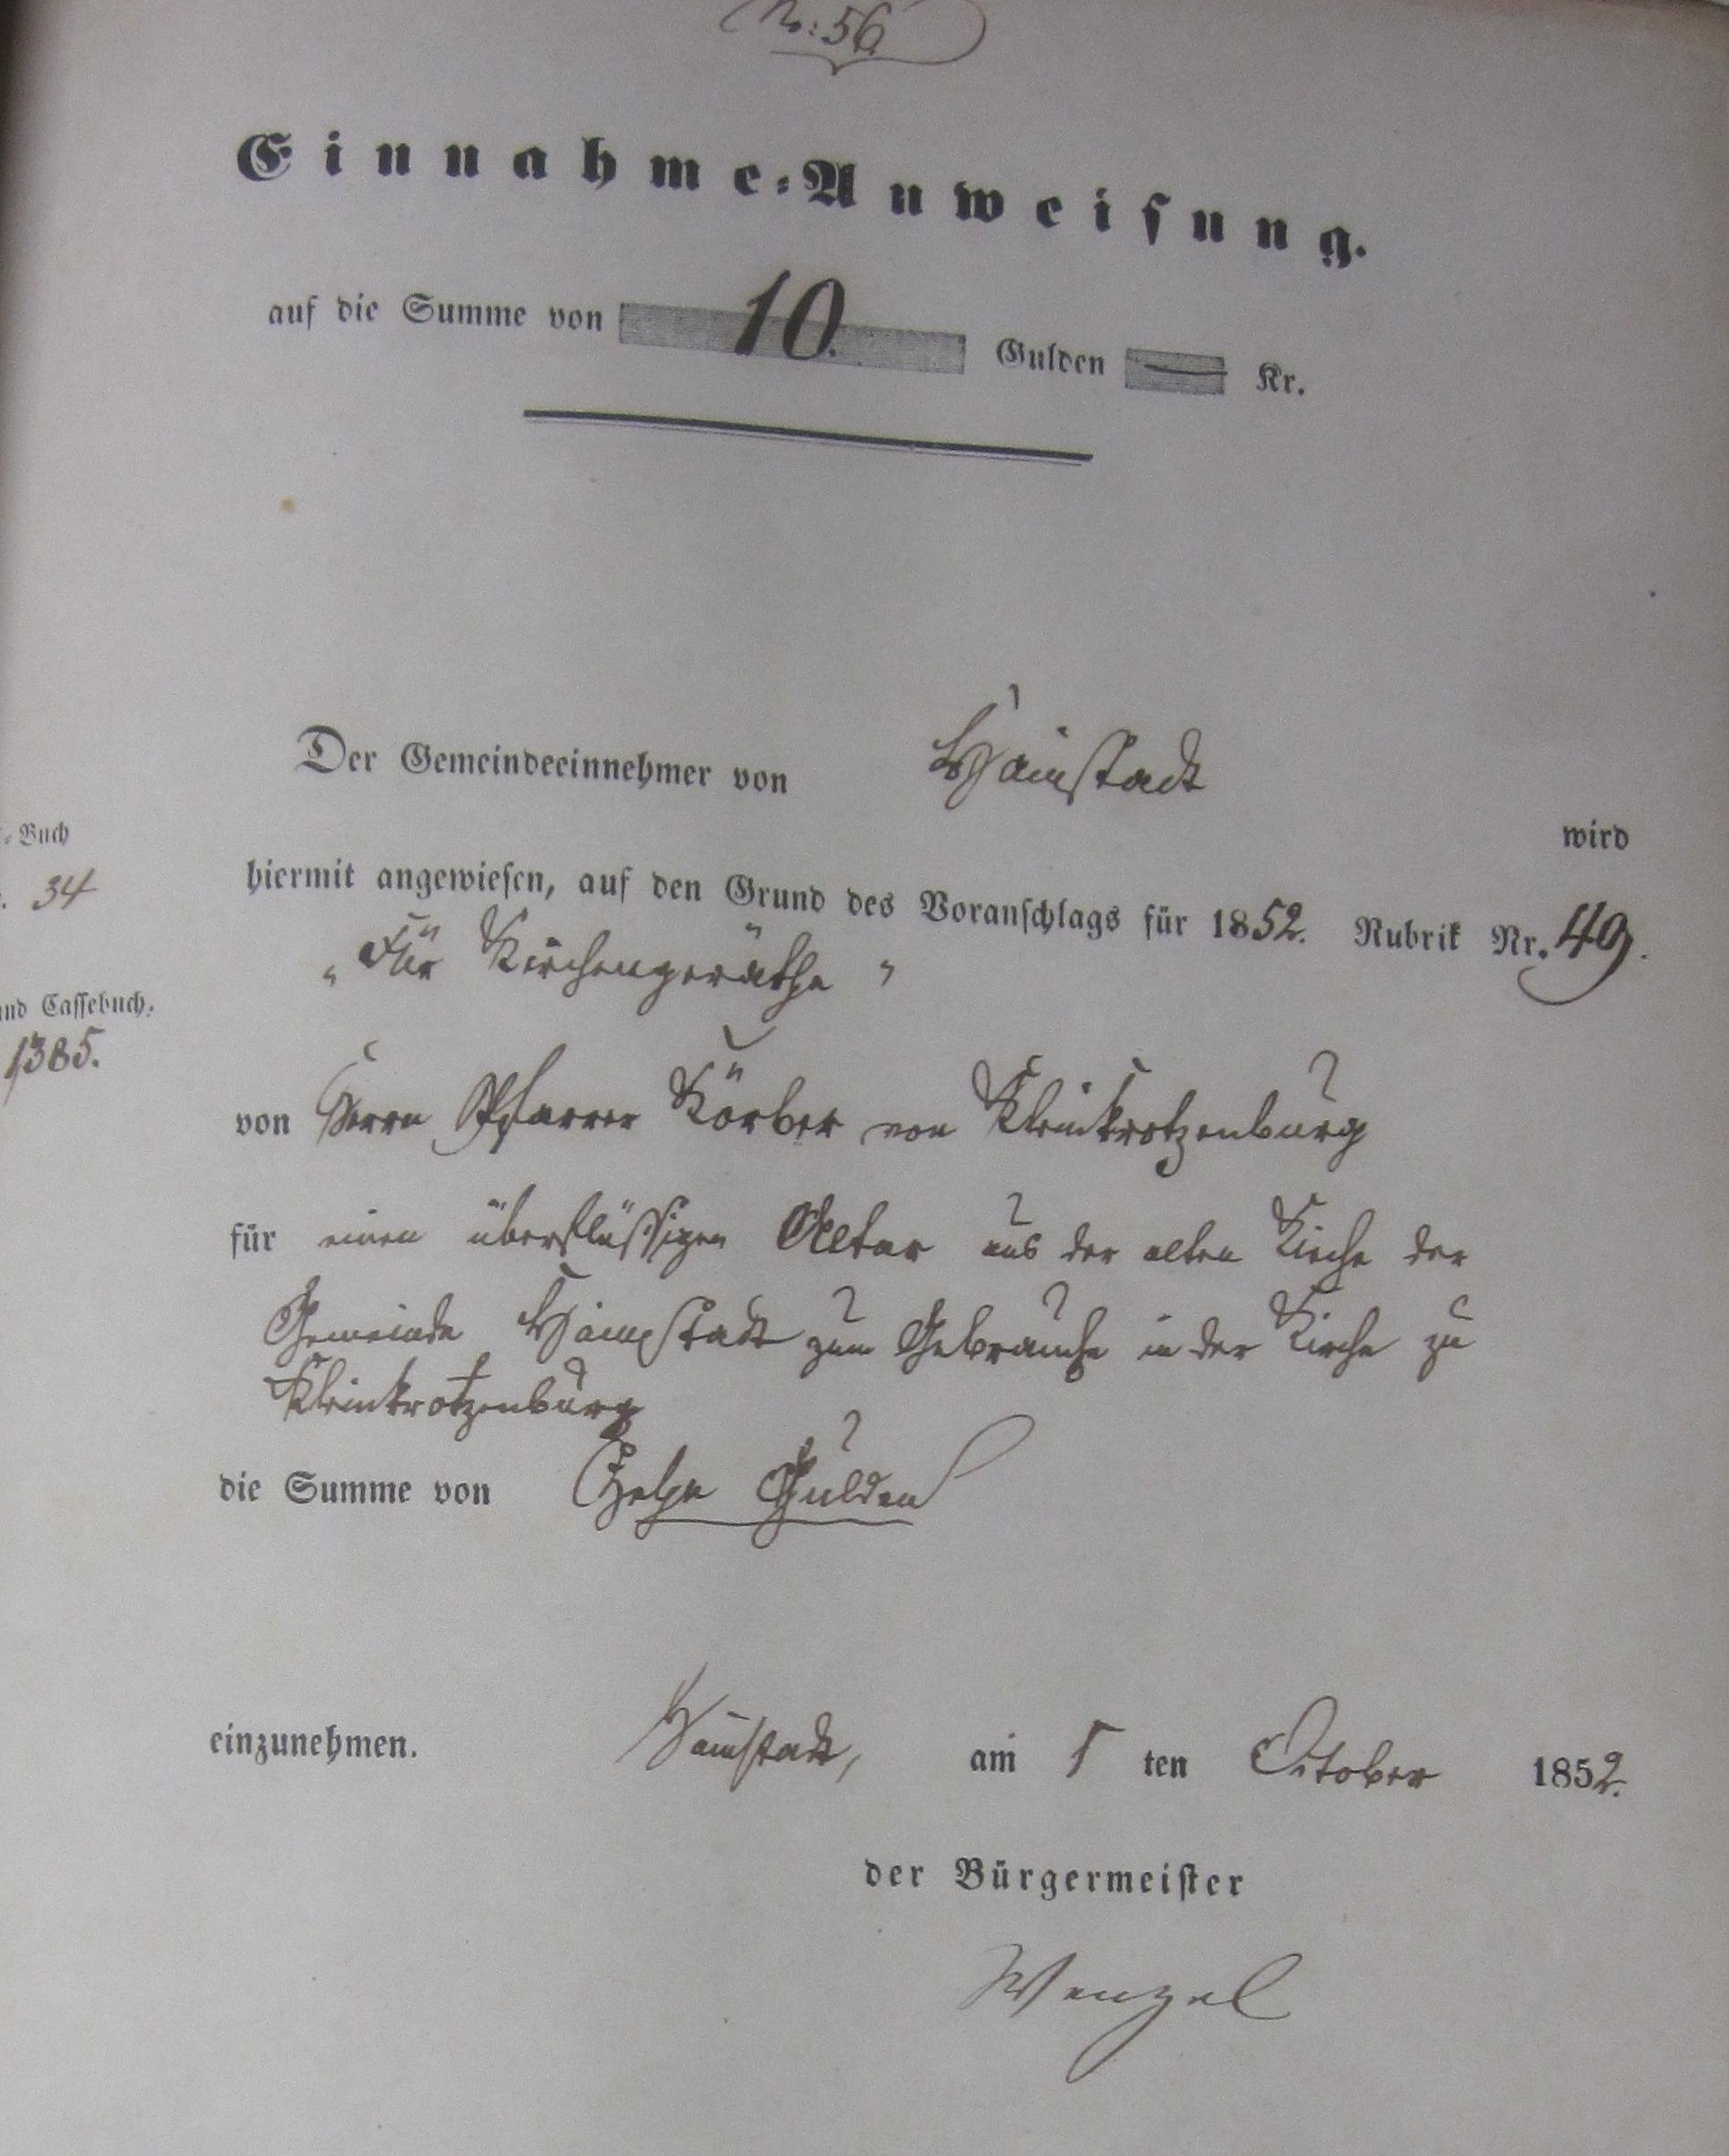 Nr: 56.
Einnahme-Anweisung.
auf die Summe von 10. Gulden — Kr.
Der Gemeindeeinnehmer von Hainstadt wird
= Buch
34
hiermit angewiesen, auf den Grund des Voranschlags für 1852. Rubrik Nr. 49.
„Für Kirchengeräthe"
nd Cassebuch.
1385.
von Herrn Pfarrer Körber von Kleinkrotzenburg
für einen überflüssigen Altar aus der alten Kirche der
Gemeinde Hainstadt zum Gebrauche in der Kirche zu
Kleinkrotzenburg
die Summe von Zehn Gulden
einzunehmen. Hainstadt, am 1 ten October 1852.
der Bürgermeister
Wenzel